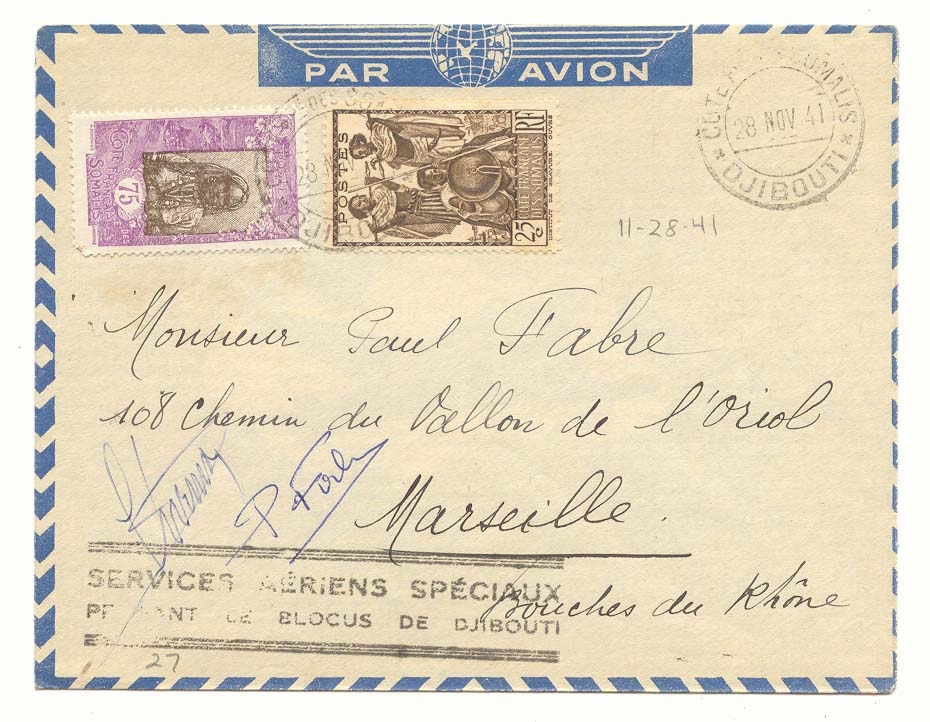 PAR AVION
CÔTE SOMALIS
28 NOV 41
DJIBOUTI
CÔTE FRANÇAISE DES SOMALIS
75
POSTES
RF
CÔTE FRANÇAISE DES SOMALIS
25c
11-28-41
Monsieur Paul Fabre
108 Chemin du Vallon de l'Oriol
Marseille.
Bouches du Rhône
SERVICES AÉRIENS SPÉCIAUX
LE BLOCUS DE DJIBOUTI
27